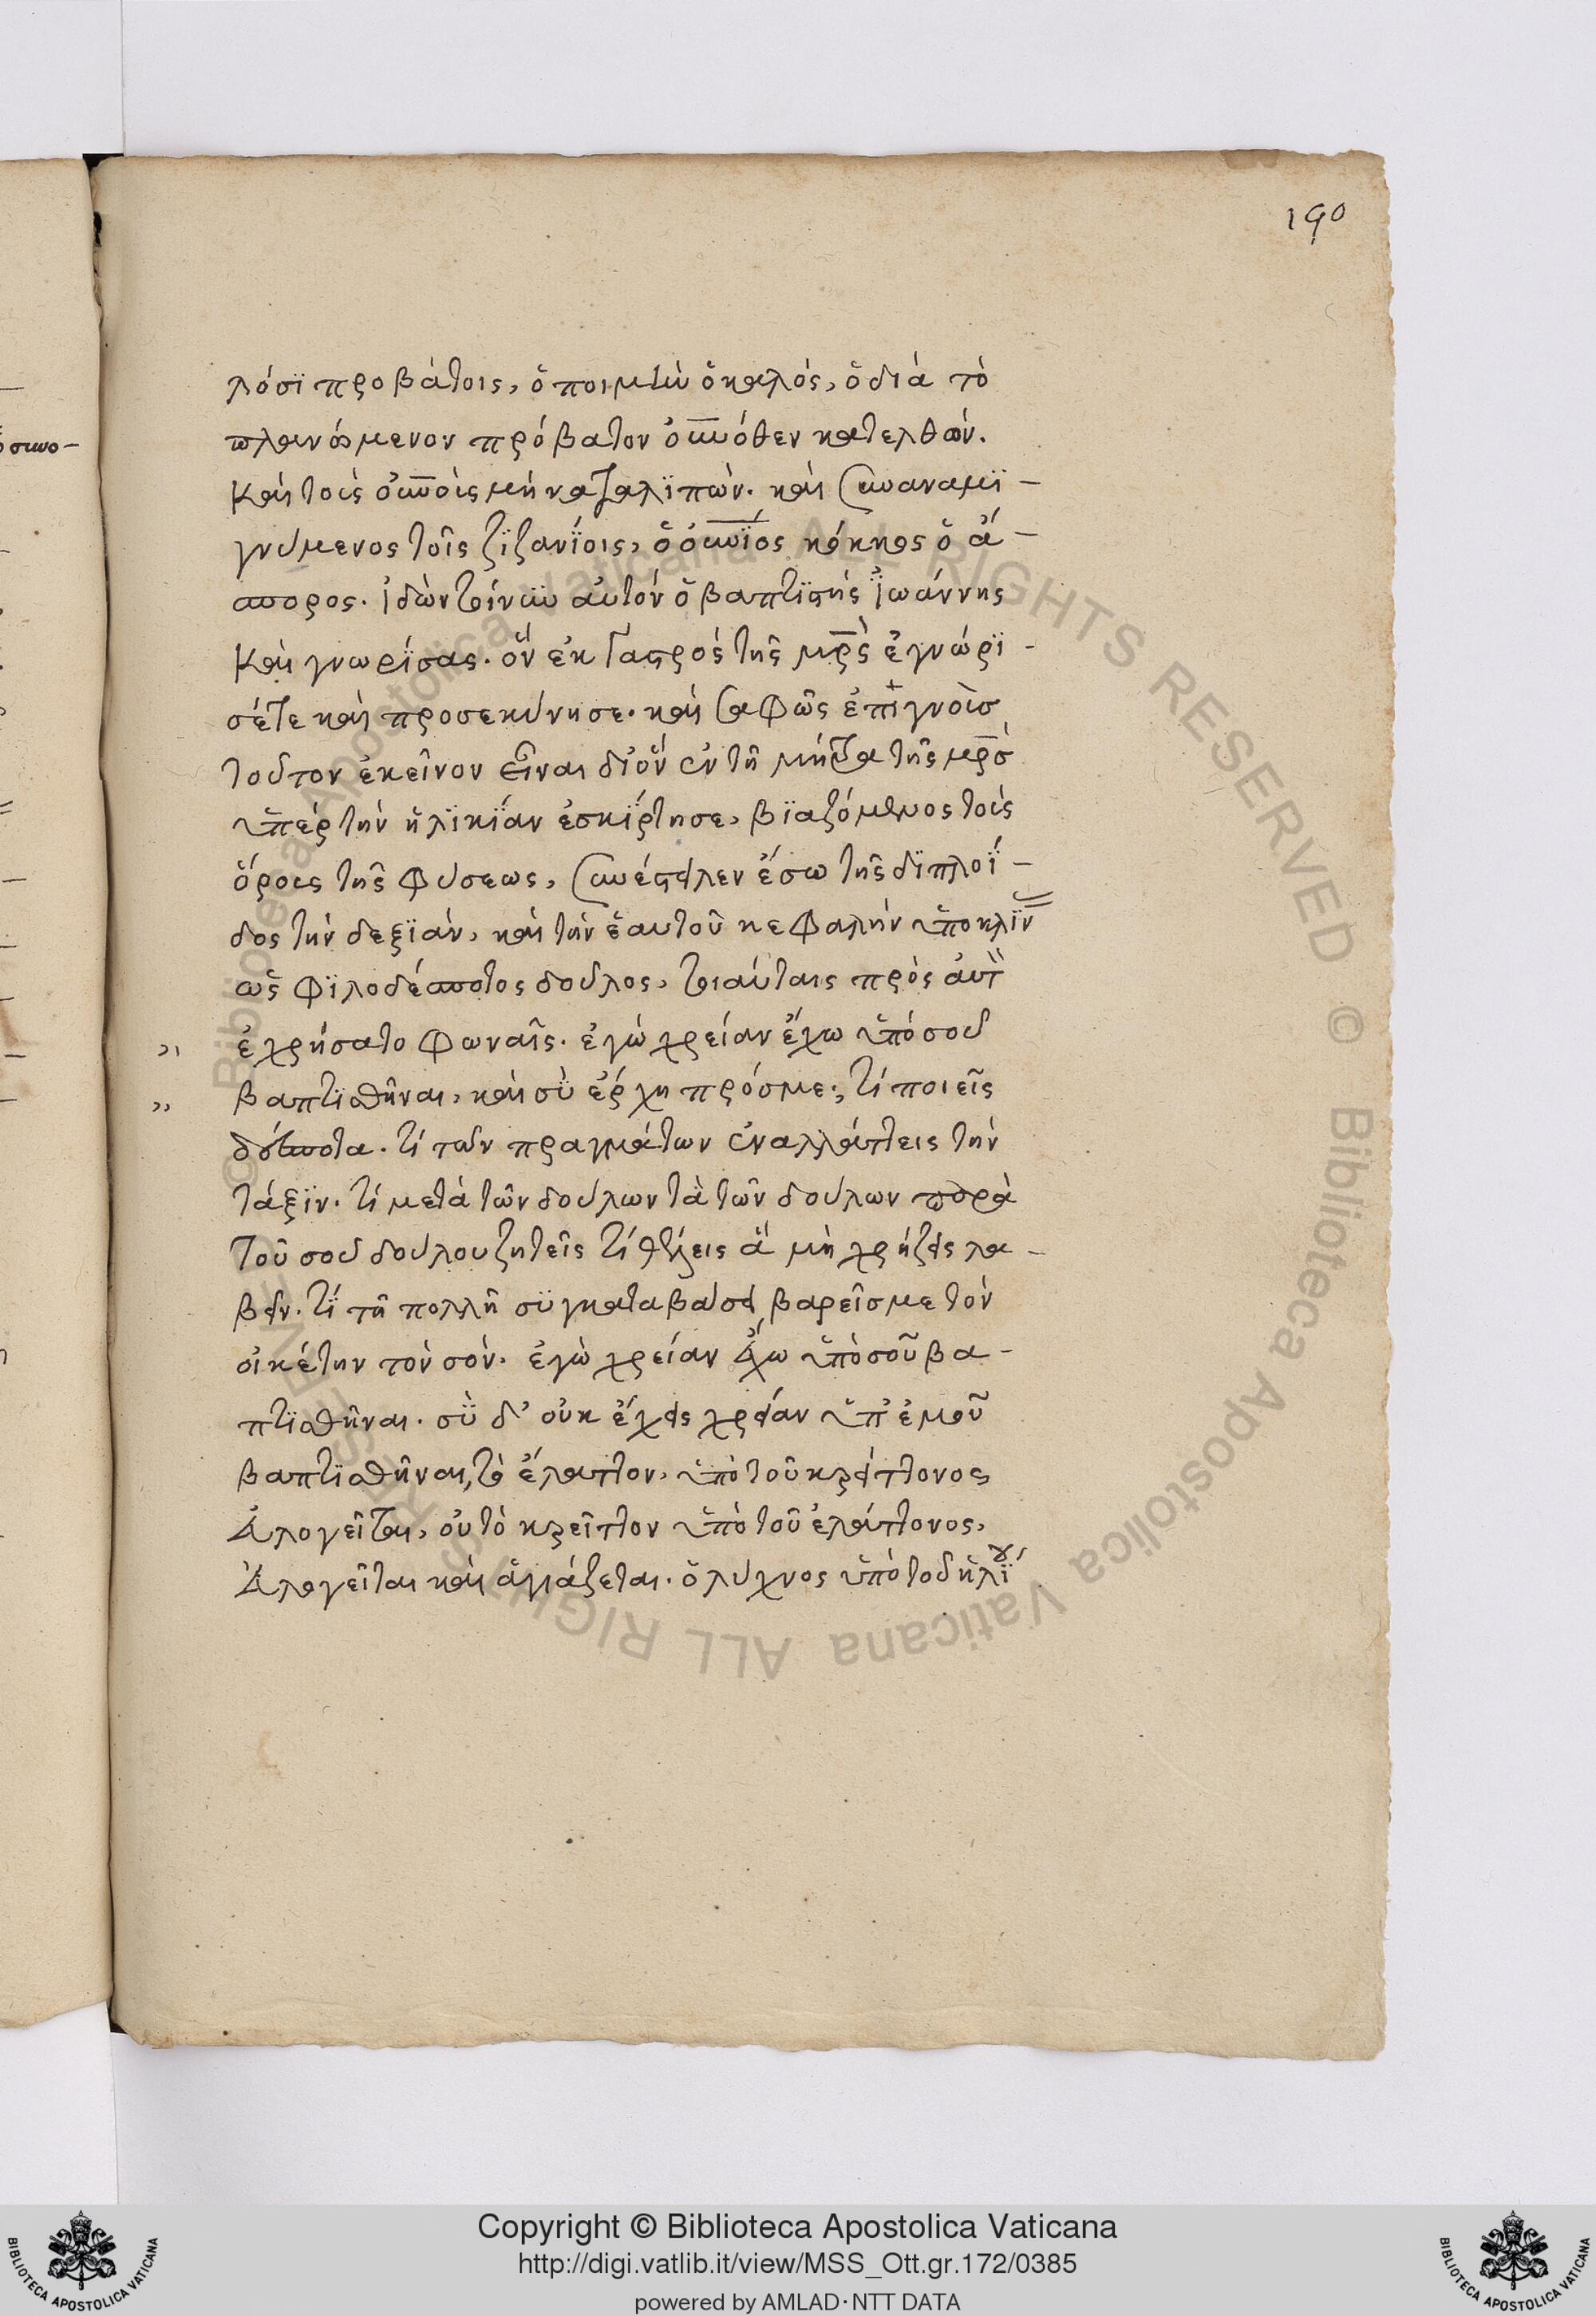 190
λόσϊ προβάτοις, ὁ ποιμὴν ὁ καλός, ὁ διὰ τὸ
πλανώμενον πρόβατον οὐνόθεν κατελθών.
καὶ τοῖς οὐνοῖς μὴ καταλϊπών. καὶ συναναμϊ-
γνύμενος τοῖς ζϊζανΐοις, ὁ οὐνΐος κόκκος ὁ ἄ-
σπορος. ἰδὼν τοίνυν αὐτὸν ὁ βαπτϊστὴς ἰωάννης
καὶ γνωρΐσας. ὃν ἐκ γαστρὸς τῆς μρς ἐγνώρϊ-
σέτε καὶ προσεκύνησε. καὶ σαφῶς ἐπιγνοὺς
τοῦτον ἐκεῖνον εἶναι δι' ὃν ἐν τῇ μήτρα τῆς μρς
ὑπὲρ τὴν ἡλϊκΐαν ἐσκΐρτησε, βϊαζόμενος τοὺς
ὅρους τῆς φύσεως, συνέστειλεν ἔσω τῆς διπλοΐ-
δος τὴν δεξϊὰν, καὶ τὴν ἑαυτοῦ κεφαλὴν ὑποκλΐν
ὡς φϊλοδέσποτος δοῦλος, τοιαύταις πρὸς αὐτ
ἐχρήσατο φωναῖς. ἐγὼ χρείαν ἔχω ὑπὸ σοῦ
βαπτϊσθῆναι, καὶ σὺ ἔρχη πρός με; τί ποιεῖς
δέσποτα. τί τῶν πραγμάτων ἐναλλάττεις τὴν
τάξϊν. τί μετὰ τῶν δούλων τὰ τῶν δούλων παρὰ
τοῦ σοῦ δούλου ζητεῖς τί θέλεις ἃ μὴ χρήζεις λα-
βεῖν. τΐ τῇ πολλῇ συγκαταβάσει βαρεῖς με τὸν
οἰκέτην τὸν σόν. ἐγὼ χρείαν ἔχω ὑπὸ σοῦ βα-
πτϊσθῆναι. σὺ δ' οὐκ ἔχεις χρείαν ὑπ' ἐμοῦ
βαπτϊσθῆναι, τὸ ἔλαττον, ὑπὸ τοῦ κρείττονος
εὐλογεῖται, οὐ τὸ κρεῖττον ὑπὸ τοῦ ἐλάττονος,
εὐλογεῖται καὶ ἁγιάζεται. ὁ λύχνος ὑπὸ τοῦ ἡλΐου
Copyright © Biblioteca Apostolica Vaticana
http://digi.vatlib.it/view/MSS_Ott.gr.172/0385
powered by AMLAD·NTT DATA